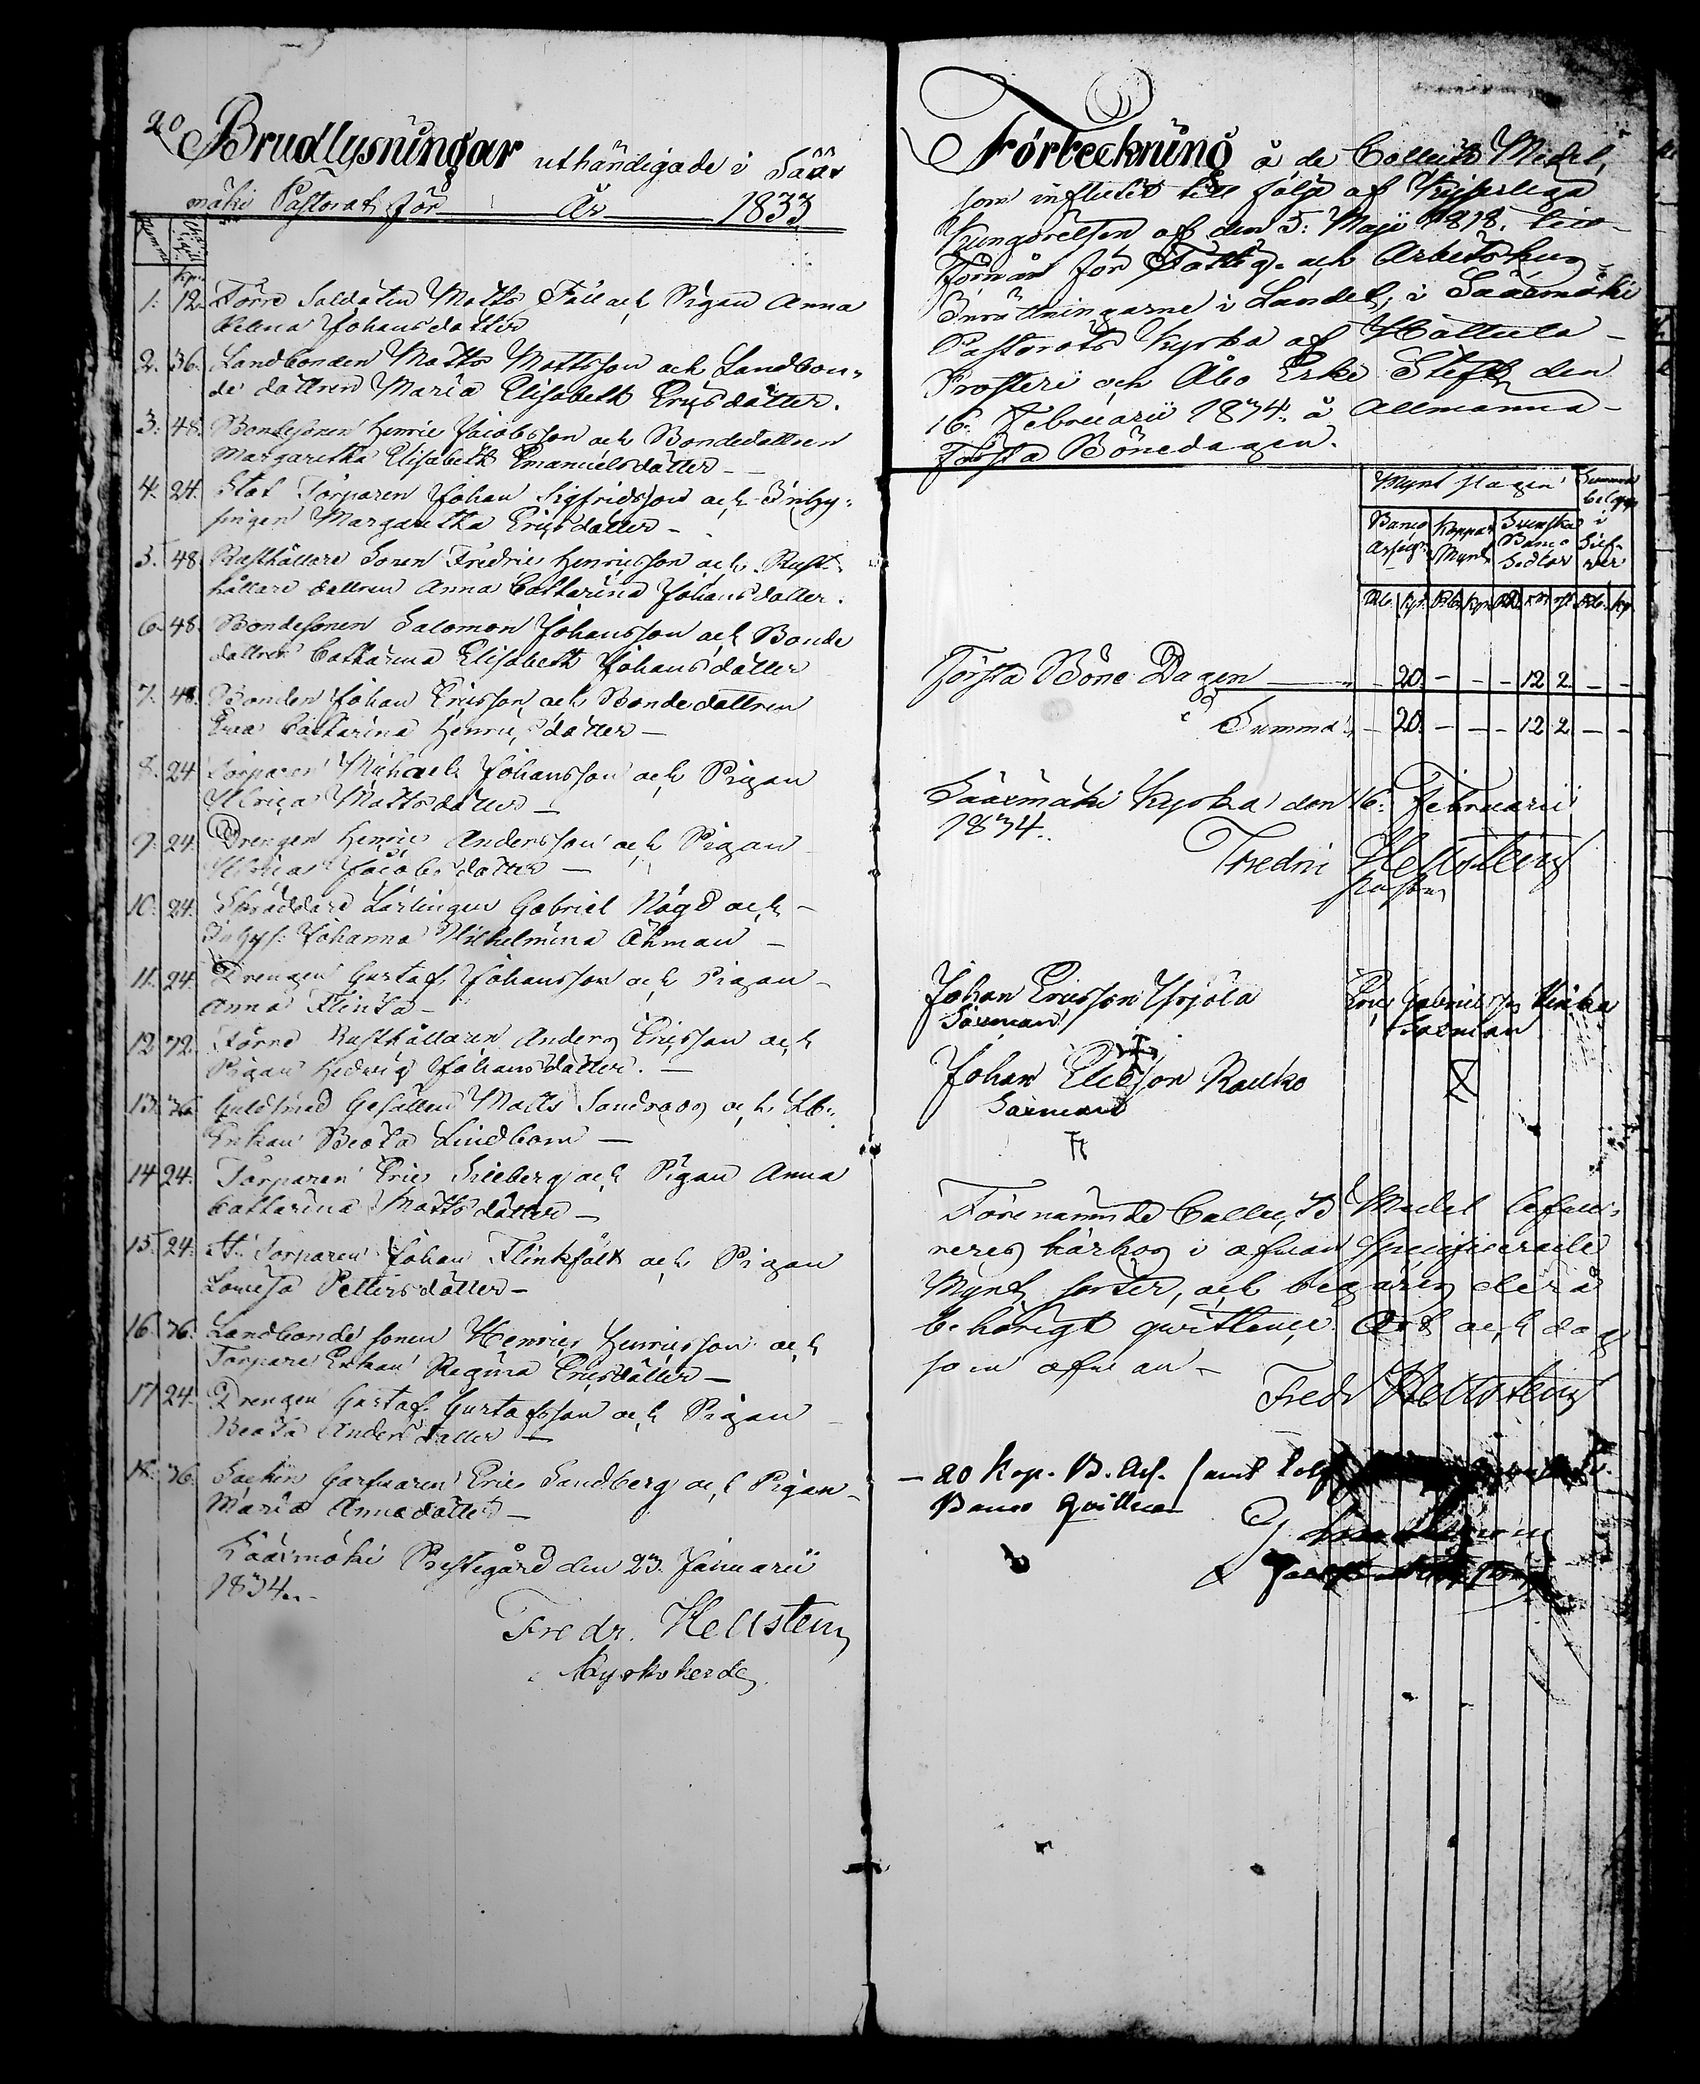 20
Brudlysningar uthändigade i Sääx
mäki Pastorat för År 1833
Kp.
1. 12. Förre Soldaten Matts Fäll och Pigan Anna
Helena Johansdotter
2. 36. Landbonden Matts Mattsson och Landbon-
de dottren Maria Elisabeth Ericsdotter.
3. 48. Bondesonen Henric Jacobsson och Bondedottren
Margaretha Elisabeth Emanuelsdotter -
4. 24. Stat Torparen Johan Sigfridsson och Inhy-
singen Margaretha Ericsdotter -
5. 48. Rusthållare Sonen Fredric Henricsson och Rust-
hållare dottren Anna Catharina Johansdotter.
6. 48. Bondesonen Salomon Johansson och Bonde
dottren Catharina Elisabeth Johansdotter
7. 48. Bonden Johan Ericsson och Bondedottren
Eva Catharina Henricsdotter -
8. 24. Torparen Michael Johansson och Pigan
Ulrica Mattsdotter -
9. 24. Drengen Henric Andersson och Pigan
Ulrica Jacobsdotter -
10. 24. Skräddare Lärlingen Gabriel Högd och -
Inhys: Johanna Wilhelmina Öhman -
11. 24. Drengen Gustaf Johansson och Pigan -
Anna Flinta -
12. 72. Förre Rusthållaren Anders Ericsson och
Pigan Hedvig Johansdotter. -
13. 36. Guldsmed Gesällen Matts Sandroos och
Enkan Beata Lindbom -
14. 24. Torparen Eric Sileberg och Pigan Anna
Catharina Mattsdotter -
15. 24. St. Torparen Johan Flinkfält och Pigan
Lovisa Pettersdotter -
16. 36. Landbonde sonen Henric Henricsson och
Torpare Enkan Regina Ericsdotter -
17. 24. Drengen Gustaf Gustafsson och Pigan
Beata Andersdotter -
18. 36. Sockne Garfvaren Eric Sandberg och Pigan -
Maria Annæ dotter -
Sääxmäki Prestegård den 23. Januarii
1834.
Fredr. Hellsten,
Kyrkoherde
Förteckning å de Collect Medel,
som influtit till följe af Kejserliga
Kungörelsen af den 5. Maji 1818. till
förmån för Fattig- och Arbetshus-
Inrättningarne i Landet, i Sääxmäki
Pastorats Kyrka af Hattula -
Prosteri och Åbo Erke Stift, den
16. Februarii 1834. å Allmänna -
Första Bönedagen.
Mynt slagen Summa
belopp
Banco Koppar Svenska i
Assign. Mynt Banco Silf-
Sedlar ver
Rb. Kp. Rb. Kp. Rd. Rb. Kp.
Första Böne Dagen - 20. - - - 12 2 - -
Summa - 20. - - - 12 2 - -
Sääxmäki Kyrka den 16. Februarii
1834.
Fredric Hellsten
Pastor
Johan Ericsson Yrjölä Eric Gabrielsson
Sexman Sexman
Johan Ericsson Rauko
Sexman
Förenämnde Collect Medel lefve-
reres härhos i ofvan specificerade
Mynt sorter, och begäres derå
behörigt quittence. Ort och dag
som ofvan -
Fredr Hellsten
- 20 Kop. B. Ass. samt tolf
Banco Quitteras